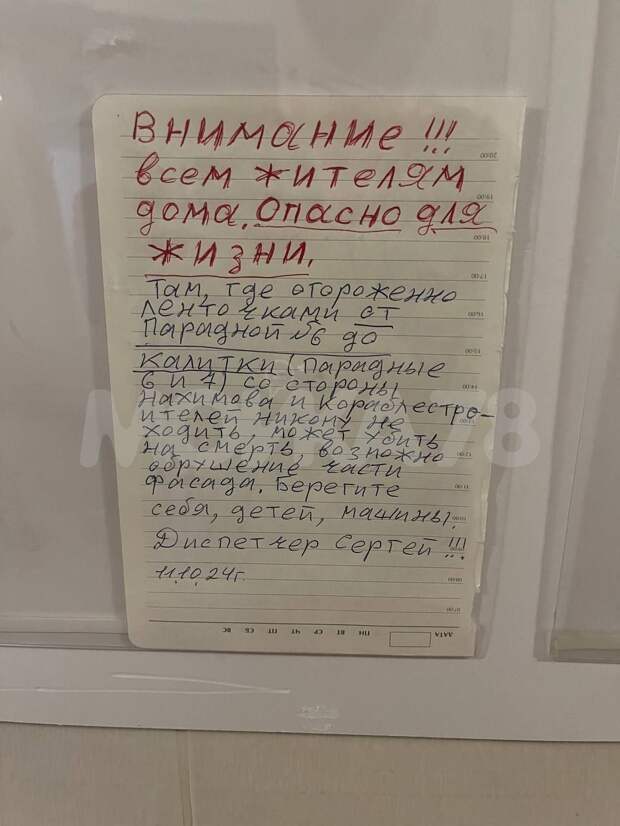 Внимание !!!
всем жителям
дома. Опасно для
жизни.
Там, где отороженно
ленточками от
Парадной №6 до
калитки (парадные
6 и 7) со стороны
нахимова и Кораблестро-
ителей никому не
ходить, может убить
на смерть, возможно
обрушение части
фасада. Берегите
себя, детей, машины.
Диспетчер Сергей !!!
11.10.24г.
20:00
19:00
18:00
17:00
16:00
15:00
14:00
12:00
11:00
10:00
09:00
08:00
07:00
ДАТА ПН ВТ СР ЧТ ПТ СБ ВС